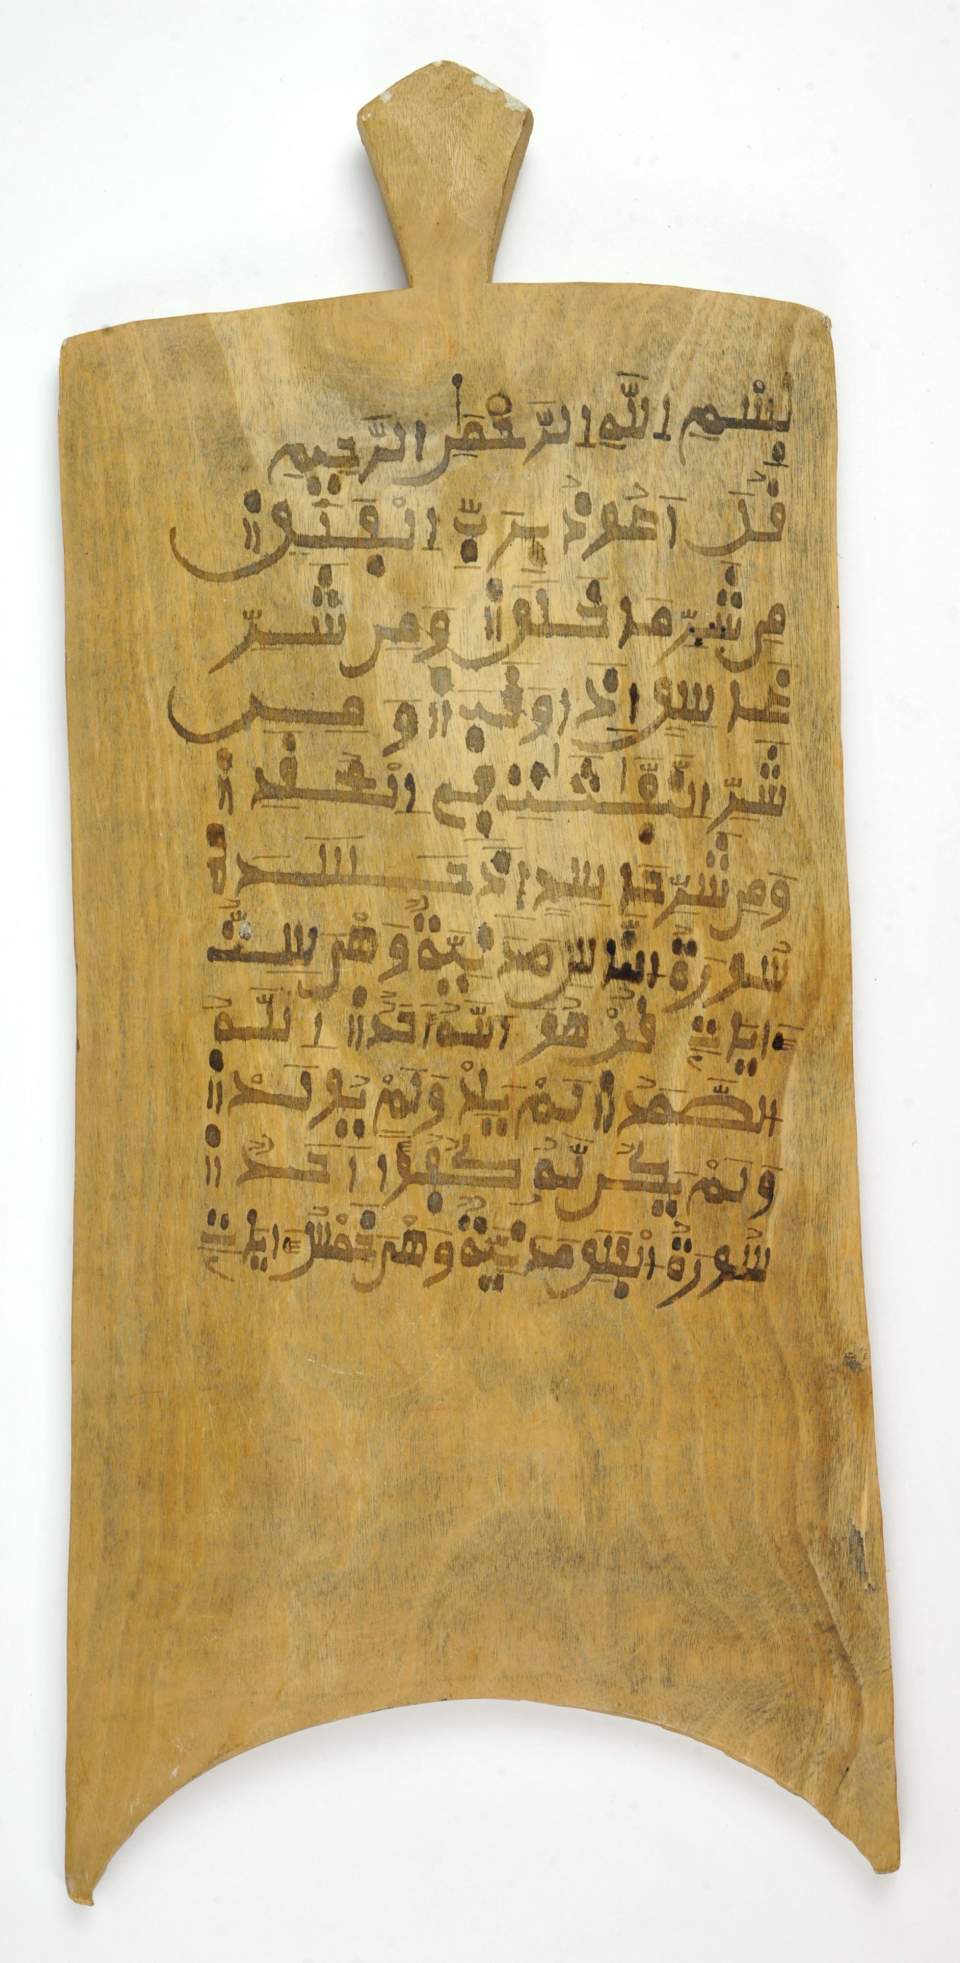 بِسْمِ اللَّهِ الرَّحْمَٰنِ الرَّحِيمِ
قُلَ اَعُوذُ بِرَبِّ الْفَلَقِ
مِن شَرِّ مَا خَلَقَ وَمِن شَرِّ
غَاسِقٍ اِذَا وَقَبَ وَمِن
شَرِّ النَّفَّٰثَٰتِ فِي الْعُقَدِ
وَمِن شَرِّ حَاسِدٍ اِذَا حَسَدَ
سُورَةُ النَّاسِ مَدَنِيَّةٌ وَهْيَ سِتُّ
ءَايَاتٍ قُلْ هُوَ اللَّهُ اَحَدٌ اَللَّهُ
الصَّمَدُ لَمْ يَلِدْ وَلَمْ يُولَدْ
وَلَمْ يَكُن لَّهُ كُفُوًا اَحَدٌ
سُورَةُ الْفَلَقِ مَدَنِيَّةٌ وَهْيَ خَمْسُ ءَايَاتٍ